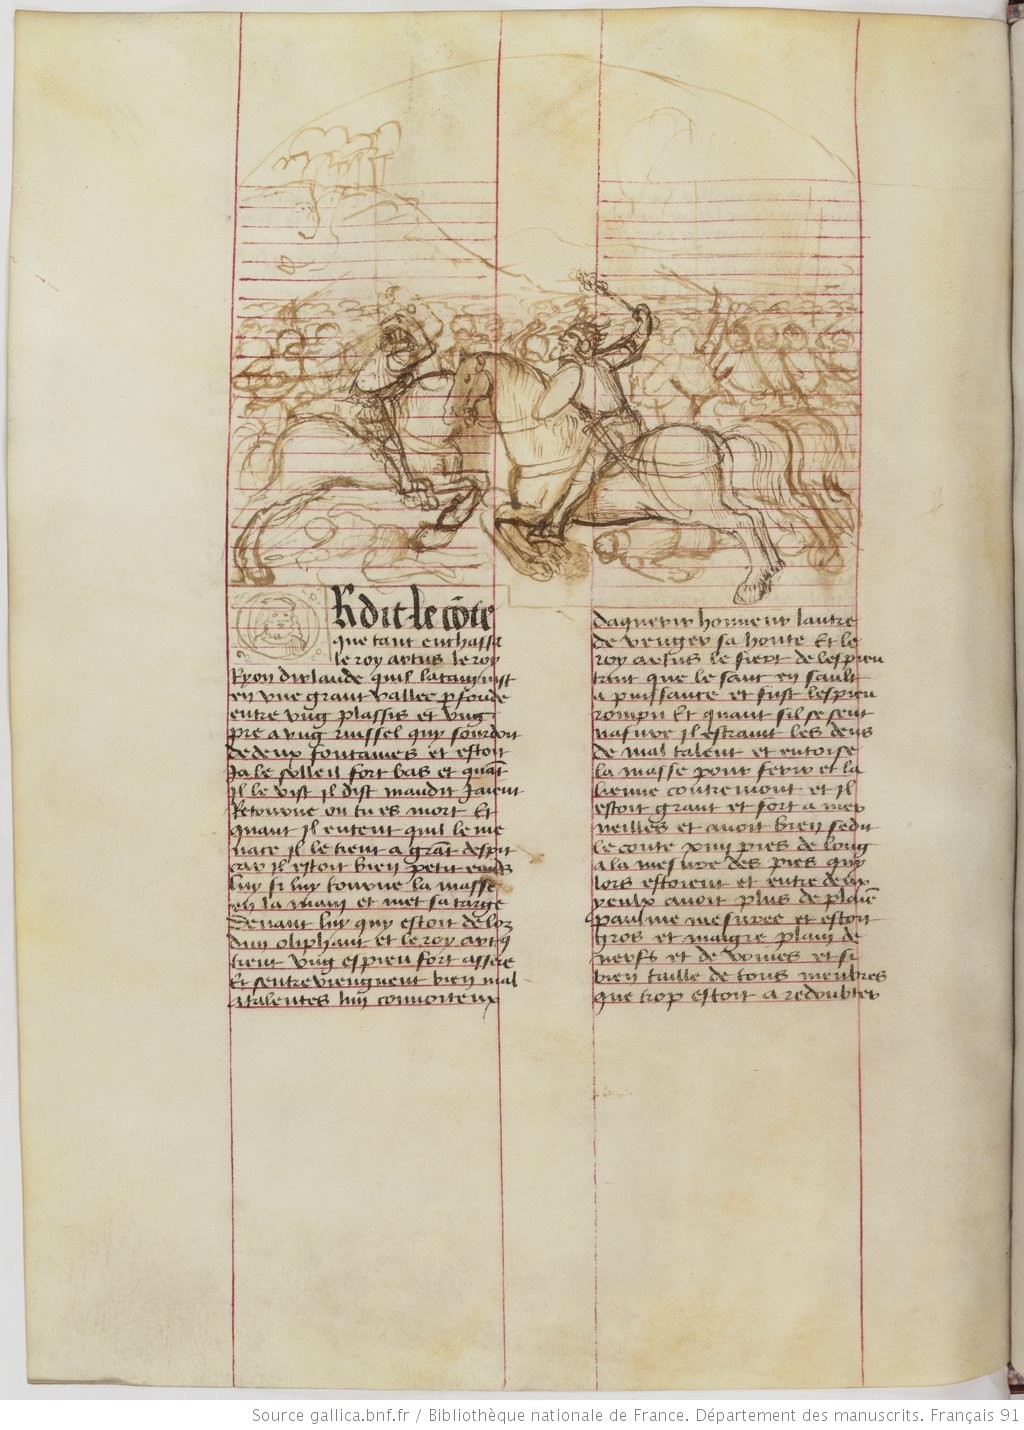 R dit le cõte
que tant enchassa
le roy artus le roy
Ryon dirlande quil lataignist
en vne grant vallee pfonde
entre vng plassis et vng
pre a vng ruissel quy sourdoit
de deux fontaines et estoit
Ja le solleil fort bas et quãt
il le vist il dist maudit Jaient
Retourne ou tu es mort Et
quant Jl entent quil le me
nace Jl le tient a grãt despit
car il estoit bien petit enuers
luy si luy tourne la masse
en la main et met sa targe
deuant luy quy estoit de loz
dun oliphant et le roy art9
tient vng espieu fort assere
Et sentreviengnent bien mal
atalentes lun conuoiteux
daquerir honneur lautre
de venger sa honte Et le
roy artus le fiert de lespieu
tant que le sant en sault
a puissance et fust lespieu
rompu Et quant sil se sent
nafure il estraint les dens
de mal talent et entoise
la masse pour ferir et la
lieue contremont et il
estoit grant et fort a mer
ueilles et auoit bien se dit
le conte xiiij pies de long
a la mesure des pies quy
lors estoient et entre deux
yeulx auoit plus de plaiẽ
paulme mesuree et estoit
gros et maigre plain de
nerfs et de voines et si
bien taille de tous menbres
que trop estoit a redoubter
Source gallica.bnf.fr / Bibliothèque nationale de France. Département des manuscrits. Français 91